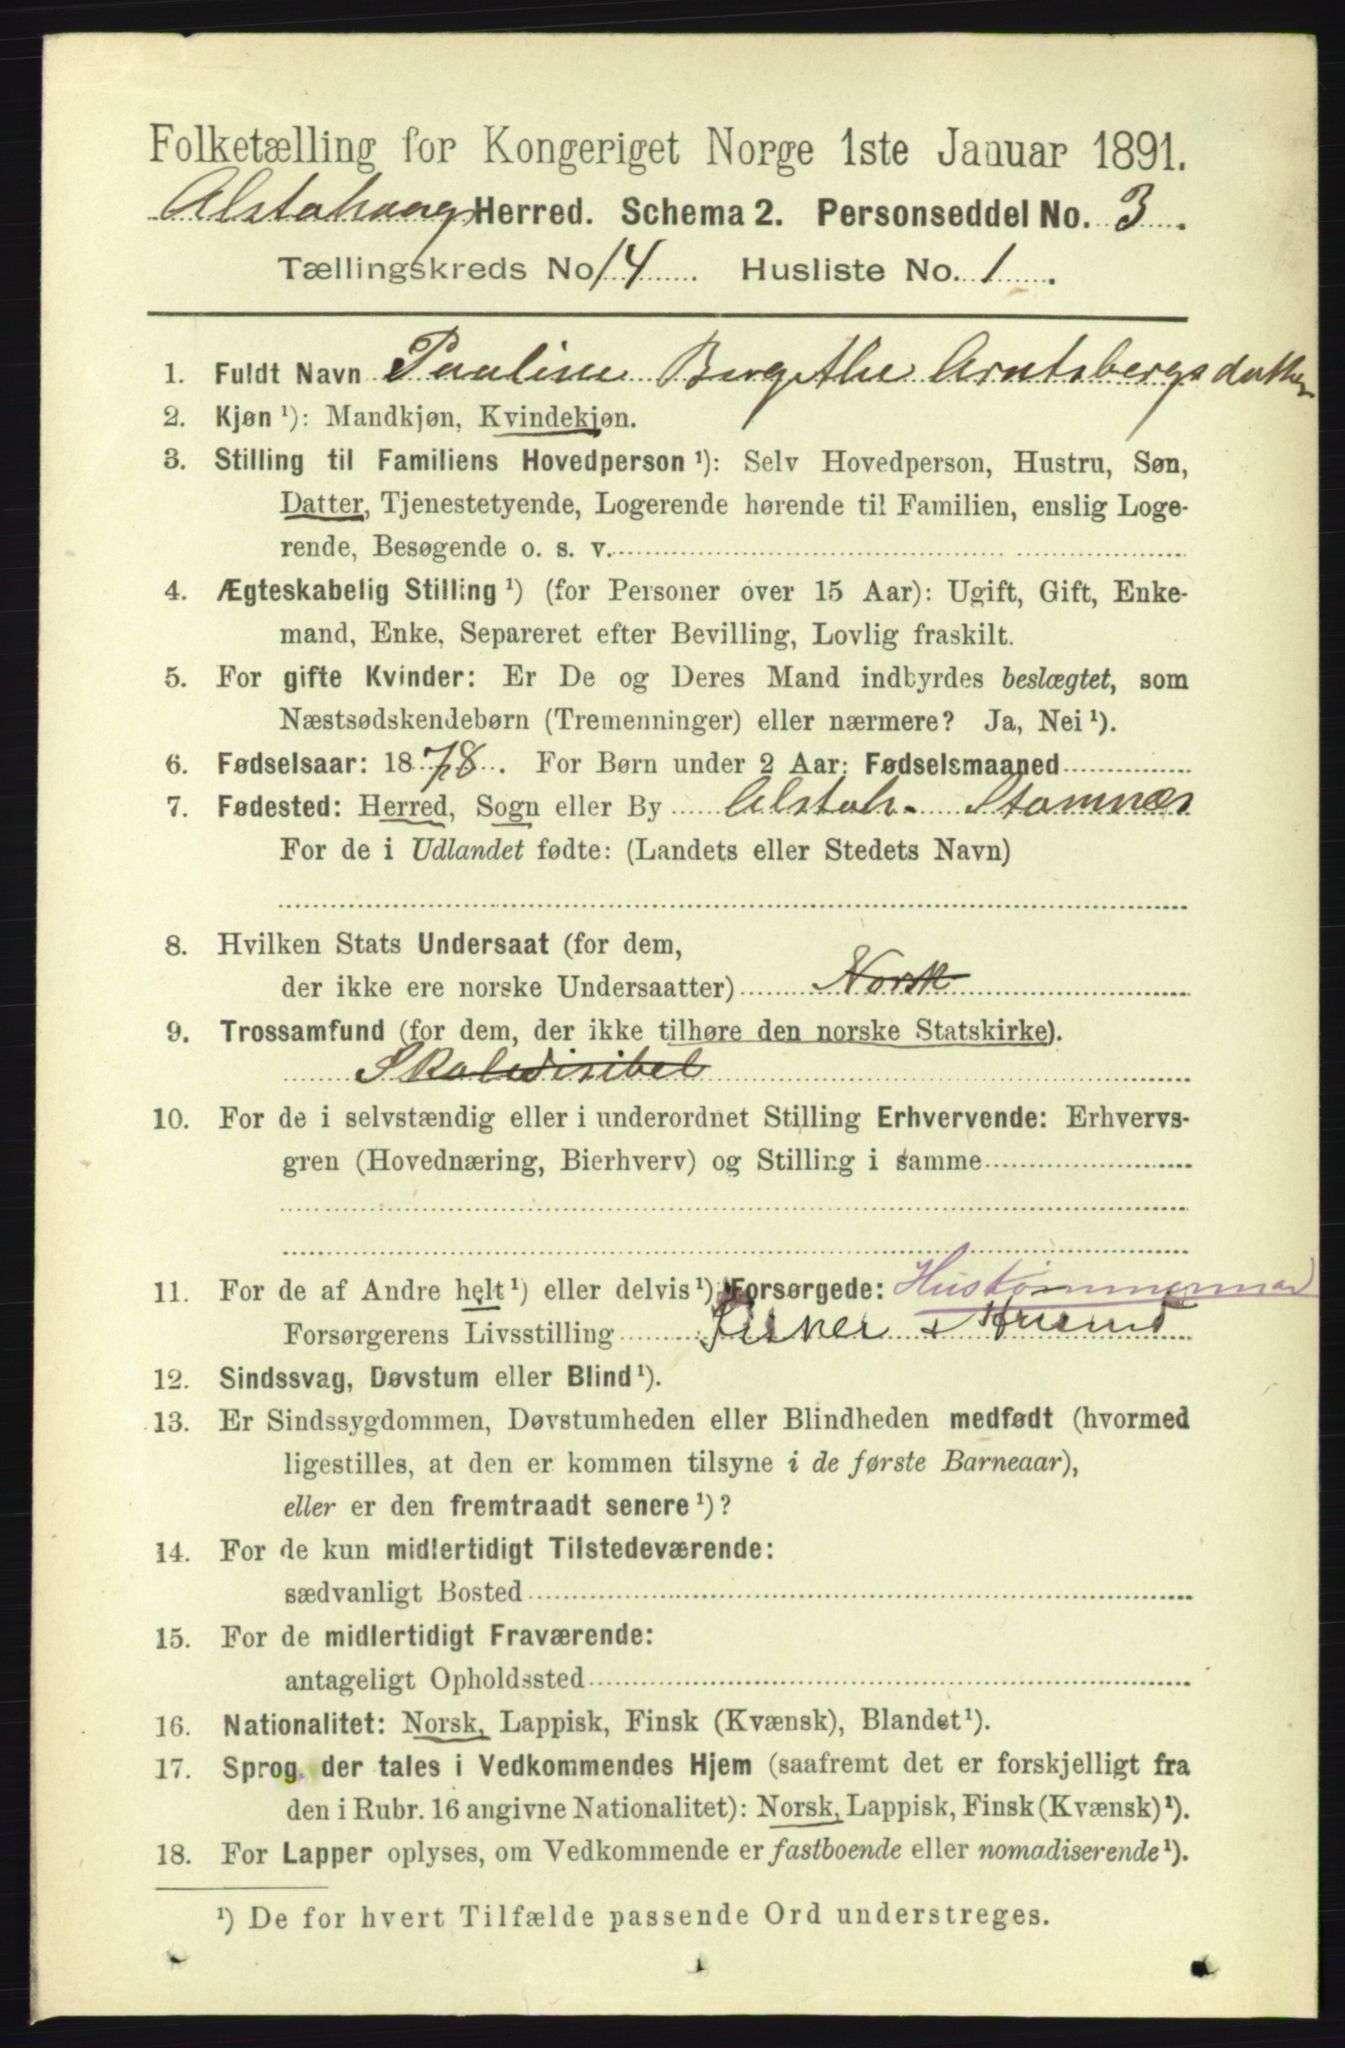 Folketælling for Kongeriget Norge 1ste Januar 1891.
Alstahaug Herred. Schema 2. Personseddel No. 3.
Tællingskreds No 14. Husliste No. 1.
1. Fuldt Navn Pauline Birgithe Arntsbergsdatter
2. Kjøn ¹): Mandkjøn, Kvindekjøn.
3. Stilling til Familiens Hovedperson ¹): Selv Hovedperson, Hustru, Søn,
Datter, Tjenestetyende, Logerende hørende til Familien, enslig Loge-
rende, Besøgende o. s. v.
4. Ægteskabelig Stilling ¹) (for Personer over 15 Aar): Ugift, Gift, Enke-
mand, Enke, Separeret efter Bevilling, Lovlig fraskilt.
5. For gifte Kvinder: Er De og Deres Mand indbyrdes beslægtet, som
Næstsødskendebørn (Tremenninger) eller nærmere? Ja, Nei ¹).
6. Fødselsaar: 1878. For Børn under 2 Aar: Fødselsmaaned
7. Fødested: Herred, Sogn eller By Alstah. Stamnæs
For de i Udlandet fødte: (Landets eller Stedets Navn)
8. Hvilken Stats Undersaat (for dem,
der ikke ere norske Undersaatter) Norsk
9. Trossamfund (for dem, der ikke tilhøre den norske Statskirke).
10. For de i selvstændig eller i underordnet Stilling Erhvervende: Erhvervs-
gren (Hovednæring, Bierhverv) og Stilling i samme
11. For de af Andre helt ¹) eller delvis ¹) Forsørgede: Hustømmermand
Forsørgerens Livsstilling Fisker
12. Sindssvag, Døvstum eller Blind ¹).
13. Er Sindssygdommen, Døvstumheden eller Blindheden medfødt (hvormed
ligestilles, at den er kommen tilsyne i de første Barneaar),
eller er den fremtraadt senere ¹)?
14. For de kun midlertidigt Tilstedeværende:
sædvanligt Bosted
15. For de midlertidigt Fraværende:
antageligt Opholdssted
16. Nationalitet: Norsk, Lappisk, Finsk (Kvænsk), Blandet ¹).
17. Sprog, der tales i Vedkommendes Hjem (saafremt det er forskjelligt fra
den i Rubr. 16 angivne Nationalitet): Norsk, Lappisk, Finsk (Kvænsk) ¹).
18. For Lapper oplyses, om Vedkommende er fastboende eller nomadiserende ¹).
¹) De for hvert Tilfælde passende Ord understreges.